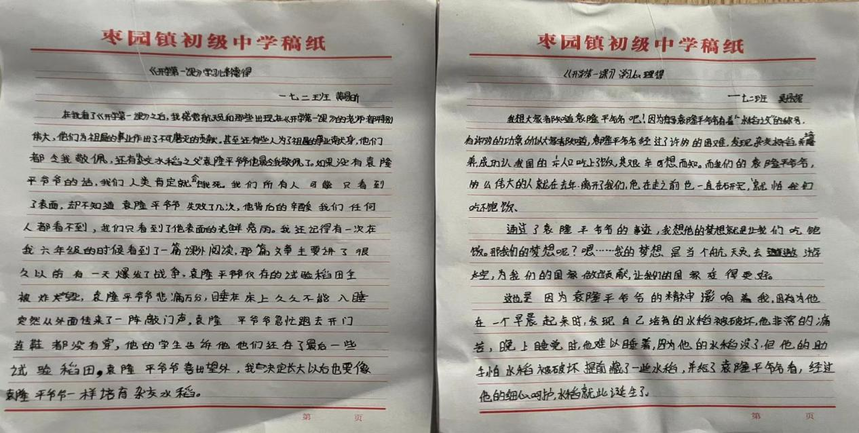 枣园镇初级中学稿纸
《开学第一课》学习心得
一七二班
在我看了《开学第一课》之后，我觉得航天员和那些出现在《开学第一课》的老师都特别
伟大，他们为祖国的事业作出了不可磨灭的贡献。甚至还有些人为了祖国的事业而献身，他们
都令我敬佩，还有杂交水稻之父袁隆平爷爷也是令我敬佩了。如果没有袁隆
平爷爷的话，我们人类肯定就会饿死。我们所有人可能只看到
了表面，却不知道袁隆平爷爷失败了几次，他背后的辛酸我们任何
人都看不到，我们只看到了他表面的光鲜亮丽。我还记得有一次在
我六年级的时候看到了一篇课外阅读，那篇文章主要讲了很
久以前有一天爆发了战争，袁隆平爷爷仅存的试验稻田全
被炸光了，袁隆平爷爷悲痛万分，睡在床上久久不能入睡
突然从外面传来了一阵敲门声，袁隆平爷爷急忙跑去开门
连鞋都没有穿，他的学生告诉他他们还存了最后一些
试验稻田，袁隆平爷爷喜出望外，我决定长大以后也要像
袁隆平爷爷一样培育杂交水稻。
第 页
枣园镇初级中学稿纸
《开学第一课》学习心得
一七二班
我想大家都知道袁隆平爷爷吧！因为袁隆平爷爷有着“杂交水稻之父”的称号，
有许许多多的功章，袁隆平爷爷经过了许许多多的困难，发现杂交水稻，并
养成功让我国的人口吃上了饭，其艰辛可想而知。而我们的袁隆平爷爷，
那么伟大的人就在去年离开我们，他在走之前也一直在研究，就怕我们
吃不饱饭。
通过了袁隆平爷爷的事迹，我想他的梦想就是让我们吃饱
饭。那我们的梦想呢？嗯……我的梦想是当个航天员去 探索
太空，为我们的国家做出贡献，让我们的国家变得更好。
这也是因为袁隆平爷爷的精神影响着我，因为他
在一个早晨起来时，发现自己培育的水稻被破坏，他非常的痛
苦，晚上睡觉时，他难以睡着，因为他的水稻没了，但他的助
手怕水稻被破坏提前藏了一些水稻，并给了袁隆平爷爷看，经过
他的细心呵护，水稻就此诞生了。
第 页